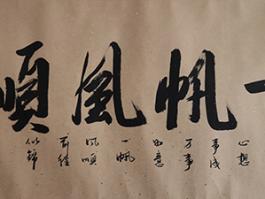 一帆風順
心想
事成
万事
如意
一帆
风順
前程
似錦